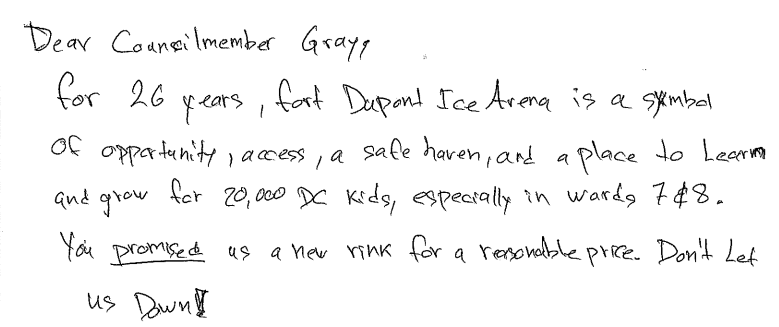 Dear Councilmember Gray,
for 26 years, fort Dupont Ice Arena is a symbol
of opportunity, access, a safe haven, and a place to Learn
and grow for 20,000 DC kids, especially in wards 7 & 8.
You promised us a new rink for a reasonable price. Don't Let
us Down!